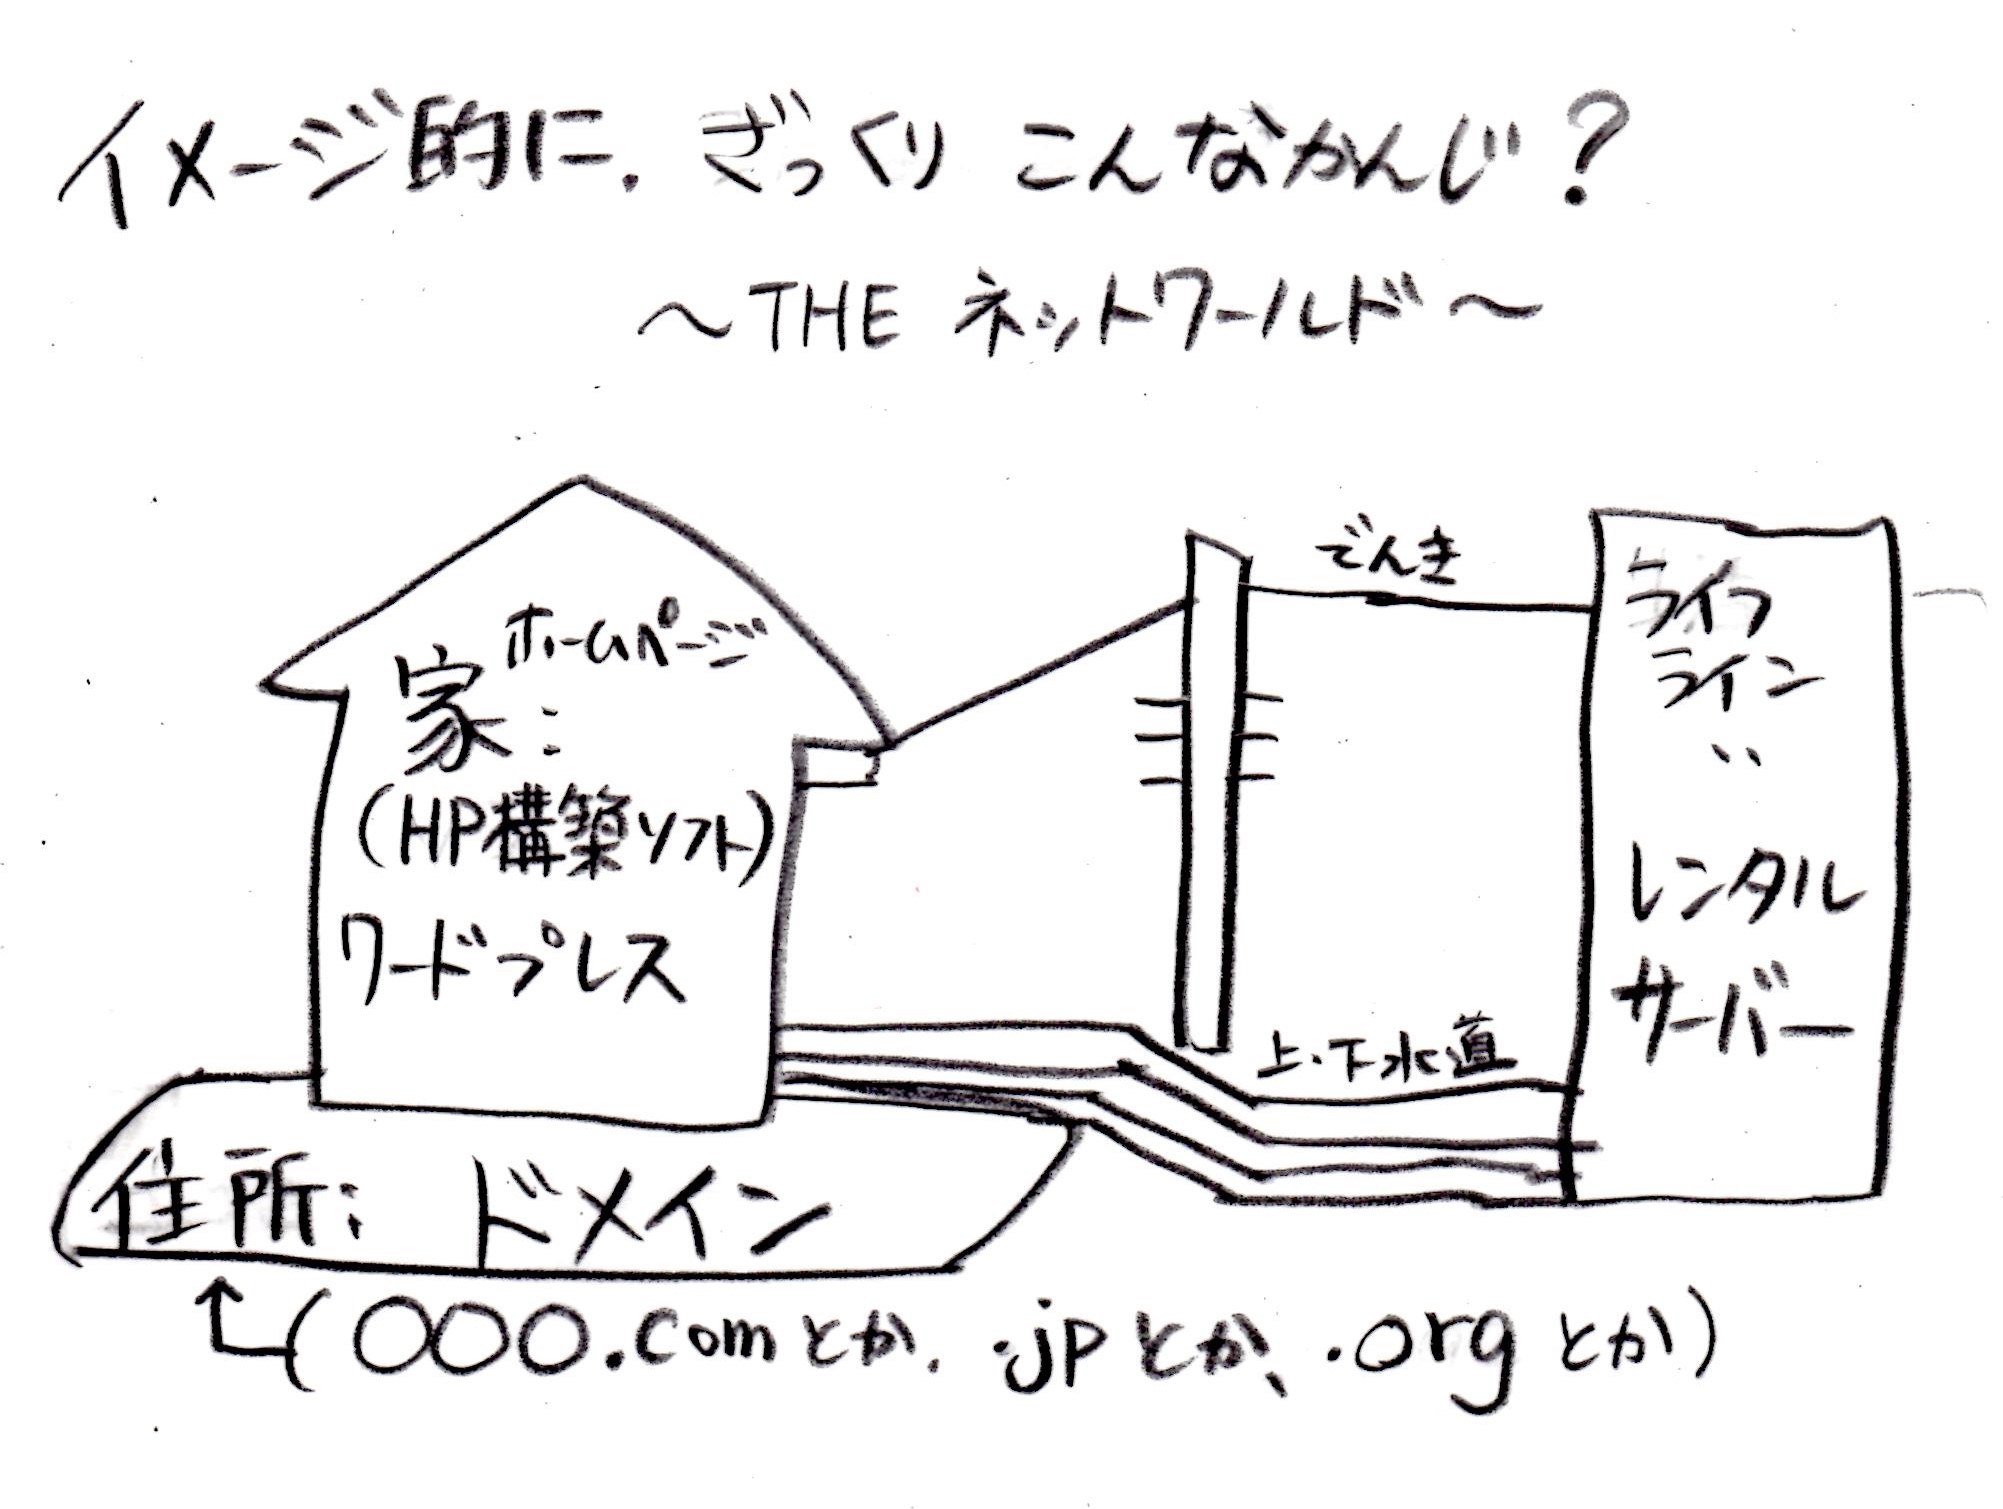 イメージ的に、ざっくり こんなかんじ?
〜THE ネットワールド〜
でんき
ライフ
ライン
:
レンタル
サーバー
ホームページ
家:
(HP構築ソフト)
ワードプレス
上・下水道
住所: ドメイン
(○○○.comとか、.jpとか、.orgとか)